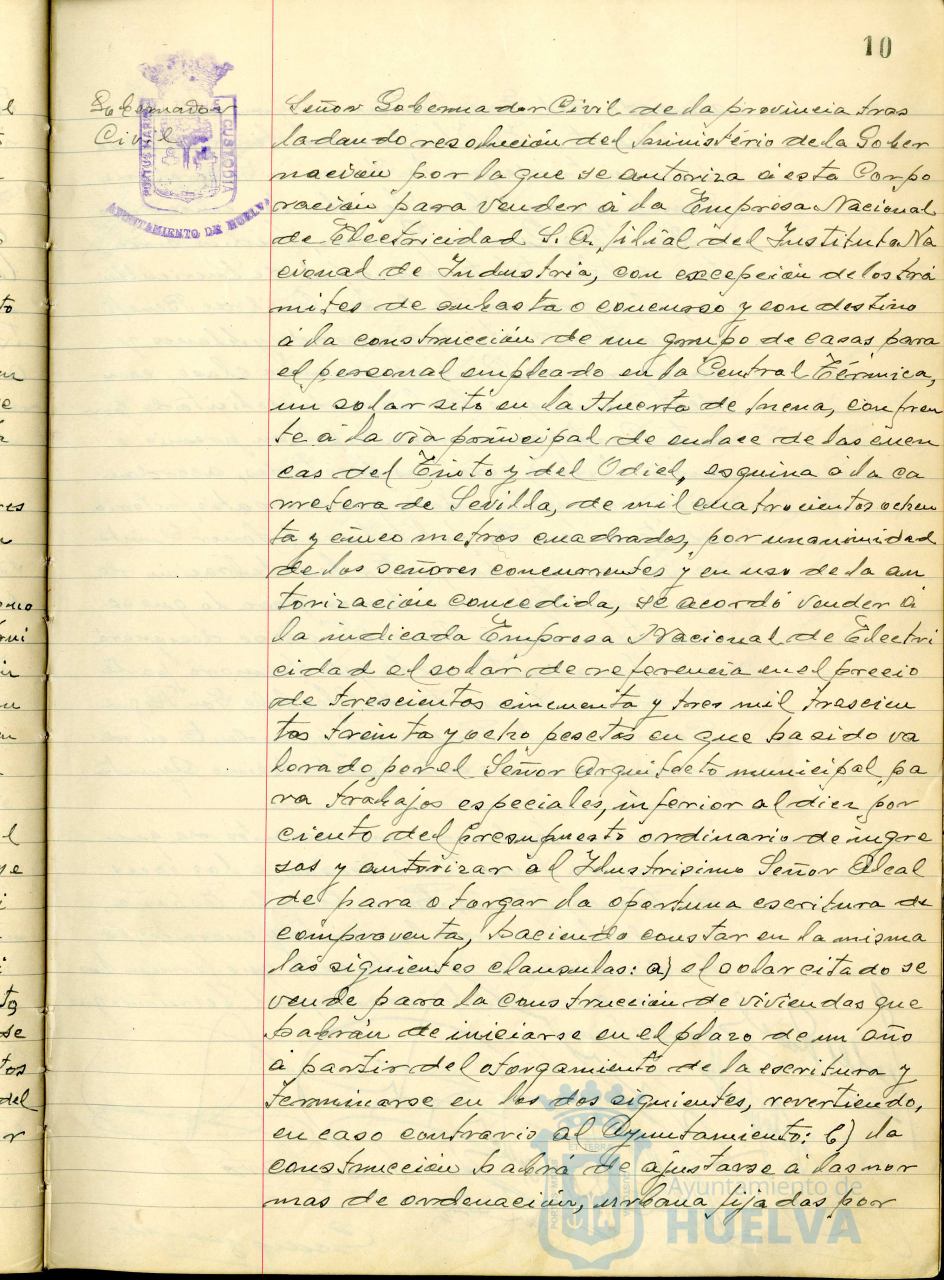 10
Gobernador
Civil
PORTUS MARIS
CUSTODIA
AYUNTAMIENTO DE HUELVA
Señor Gobernador Civil de la provincia tras
ladando resolución del Ministério de la Gober
nación por la que se autoriza á esta Corpo
ración para vender á la Empresa Nacional
de Electricidad S. A. filial del Instituto Na
cional de Industria, con excepción de los trá
mites de subasta o concurso y con destino
á la construcción de un grupo de casas para
el personal empleado en la Central Térmica,
un solar sito en la Huerta de Mena, con fren
te á la via principal de enlace de las cuen
cas del Tinto y del Odiel, esquina á la ca
rretera de Sevilla, de mil cuatrocientos ochen
ta y cinco metros cuadrados, por unanimidad
de los señores concurrentes y en uso de la au
torización concedida, se acordó vender á
la indicada Empresa Nacional de Electri
cidad el solar de referencia en el precio
de trescientas cincuenta y tres mil trescien
tas treinta y ocho pesetas en que ha sido va
lorado por el Señor Arquitecto municipal pa
ra trabajos especiales, inferior al diez por
ciento del presupuesto ordinario de ingre
sos y autorizar al Ilustrisimo Señor Alcal
de para otorgar la oportuna escritura de
compraventa, haciendo constar en la misma
las siguientes clausulas: a) el solar citado se
vende para la construcción de viviendas que
habrán de iniciarse en el plazo de un año
á partir del otorgamiento de la escritura y
terminarse en los dos siguientes, revertiendo,
en caso contrario al Ayuntamiento: b) la
construcción habrá de ajustarse á las nor
mas de ordenación, urbana fijadas por
Ayuntamiento de
HUELVA